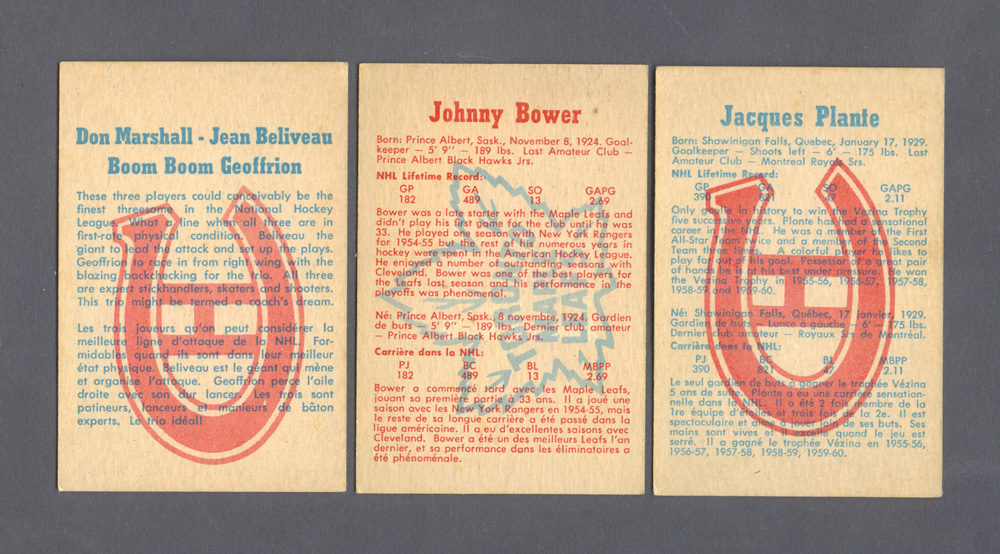 Don Marshall - Jean Beliveau
Boom Boom Geoffrion
These three players could conceivably be the
finest threesome in the National Hockey
League. What a line when all three are in
first-rate physical condition. Beliveau the
giant to lead the attack and set up the plays.
Geoffrion to race in from right wing with the
blazing backchecking for the trio. All three
are expert stickhandlers, skaters and shooters.
This trio might be termed a coach's dream.
Les trois joueurs qu'on peut considérer la
meilleure ligne d'attaque de la NHL. For-
midables quand ils sont dans leur meilleur
état physique. Beliveau est le géant qui mène
et organise l'attaque. Geoffrion percé l'aile
droite avec son dur lancer. Les trois sont
patineurs, lanceurs et manieurs de bâton
experts. Le trio idéal!
Johnny Bower
Born: Prince Albert, Sask., November 8, 1924. Goal-
keeper — 5' 9" — 189 lbs. Last Amateur Club —
Prince Albert Black Hawks Jrs.
NHL Lifetime Record:
GP GA SO GAPG
182 489 13 2.69
Bower was a late starter with the Maple Leafs and
didn't play his first game for the club until he was
33. He played one season with New York Rangers
for 1954-55 but the rest of his numerous years in
hockey were spent in the American Hockey League.
He enjoyed a number of outstanding seasons with
Cleveland. Bower was one of the best players for
the Leafs last season and his performance in the
playoffs was phenomenal.
Né: Prince Albert, Sask., 8 novembre, 1924. Gardien
de buts — 5' 9" — 189 lbs. Dernier club amateur
— Prince Albert Black Hawks Jrs.
Carrière dans la NHL:
PJ BC BL MBPP
182 489 13 2.69
Bower a commencé tard avec les Maple Leafs,
jouant sa première partie à 33 ans. Il a joué une
saison avec les New York Rangers en 1954-55, mais
le reste de sa longue carrière a été passé dans la
ligue américaine. Il a eu d'excellentes saisons avec
Cleveland. Bower a été un des meilleurs Leafs l'an
dernier, et sa performance dans les éliminatoires a
été phénoménale.
TORONTO
MAPLE
LEAFS
Jacques Plante
Born: Shawinigan Falls, Quebec, January 17, 1929.
Goalkeeper — Shoots left — 6' — 175 lbs. Last
Amateur Club — Montreal Royals Srs.
NHL Lifetime Record:
GP GA SO GAPG
390 821 47 2.11
Only goalie in history to win the Vezina Trophy
five successive years. Plante has had a sensational
career in the NHL. He was a member of the First
All-Star Team twice and a member of the Second
Team three times. A colorful player he likes to
play far out of his goal. Possessor of a great pair
of hands he is at his best under pressure. He won
the Vezina Trophy in 1955-56, 1956-57, 1957-58,
1958-59 and 1959-60.
Né: Shawinigan Falls, Québec, 17 janvier, 1929.
Gardien de buts — Lance à gauche — 6' — 175 lbs.
Dernier club amateur — Royaux Srs de Montréal.
Carrière dans la NHL:
PJ BC BL MBPP
390 821 47 2.11
Le seul gardien de buts à gagner le trophée Vézina
5 ans de suite. Plante a eu une carrière sensation-
nelle dans la NHL. Il a été 2 fois membre de la
1re équipe d'étoiles et trois fois de la 2e. Il est
spectaculaire et aime à jouer loin de ses buts. Ses
mains sont vives et il excelle quand le jeu est
serré. Il a gagné le trophée Vézina en 1955-56,
1956-57, 1957-58, 1958-59, 1959-60.